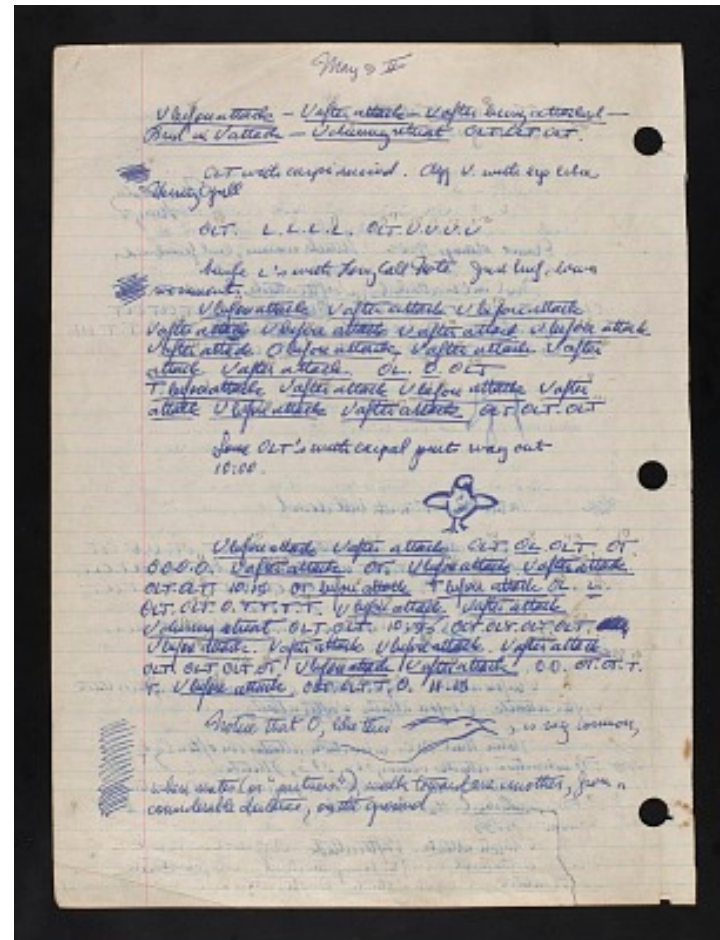 May 8 II
V before attack – V after attack – V after being attacked –
Bird in V attack – V during retreat OLT. OLT. OLT.
OLT with carpi raised. Opp V. with
OLT. L. L. L. L. OLT. U. U. U. U
L's with Long Call Note. Just
movement.
V before attack V after attack V before attack
V after attack V before attack V after attack V before attack
V after attack O before attack V after attack V after
attack V after attack OL. O. OLT
T. before attack V after attack V before attack V after
attack V before attack V after attack OLT. OLT. OLT
Some OLT's with carpal joints way out
10:00.
V before attack V after attack OLT. OL. OLT. OT.
O.O.O.O. V after attack OT. V before attack V after attack
OLT. OLT. OT before attack T before attack OL.
OLT. OLT. O. T. T. T. T. V before attack V after attack
V during retreat OLT. OLT. OLT. OLT. OLT. OLT.
V before attack. V after attack V before attack. V after attack
OLT. OLT. OLT. OT. V before attack V after attack O.O. OT. OT. T.
T. V before attack, OLT. T. O.
Notice that O, like this, is very common,
when mates (or "partners"), walk toward one another, from a
considerable distance, on the ground